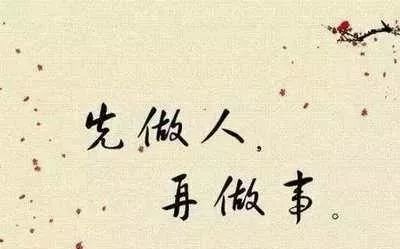 先做人,
再做事。